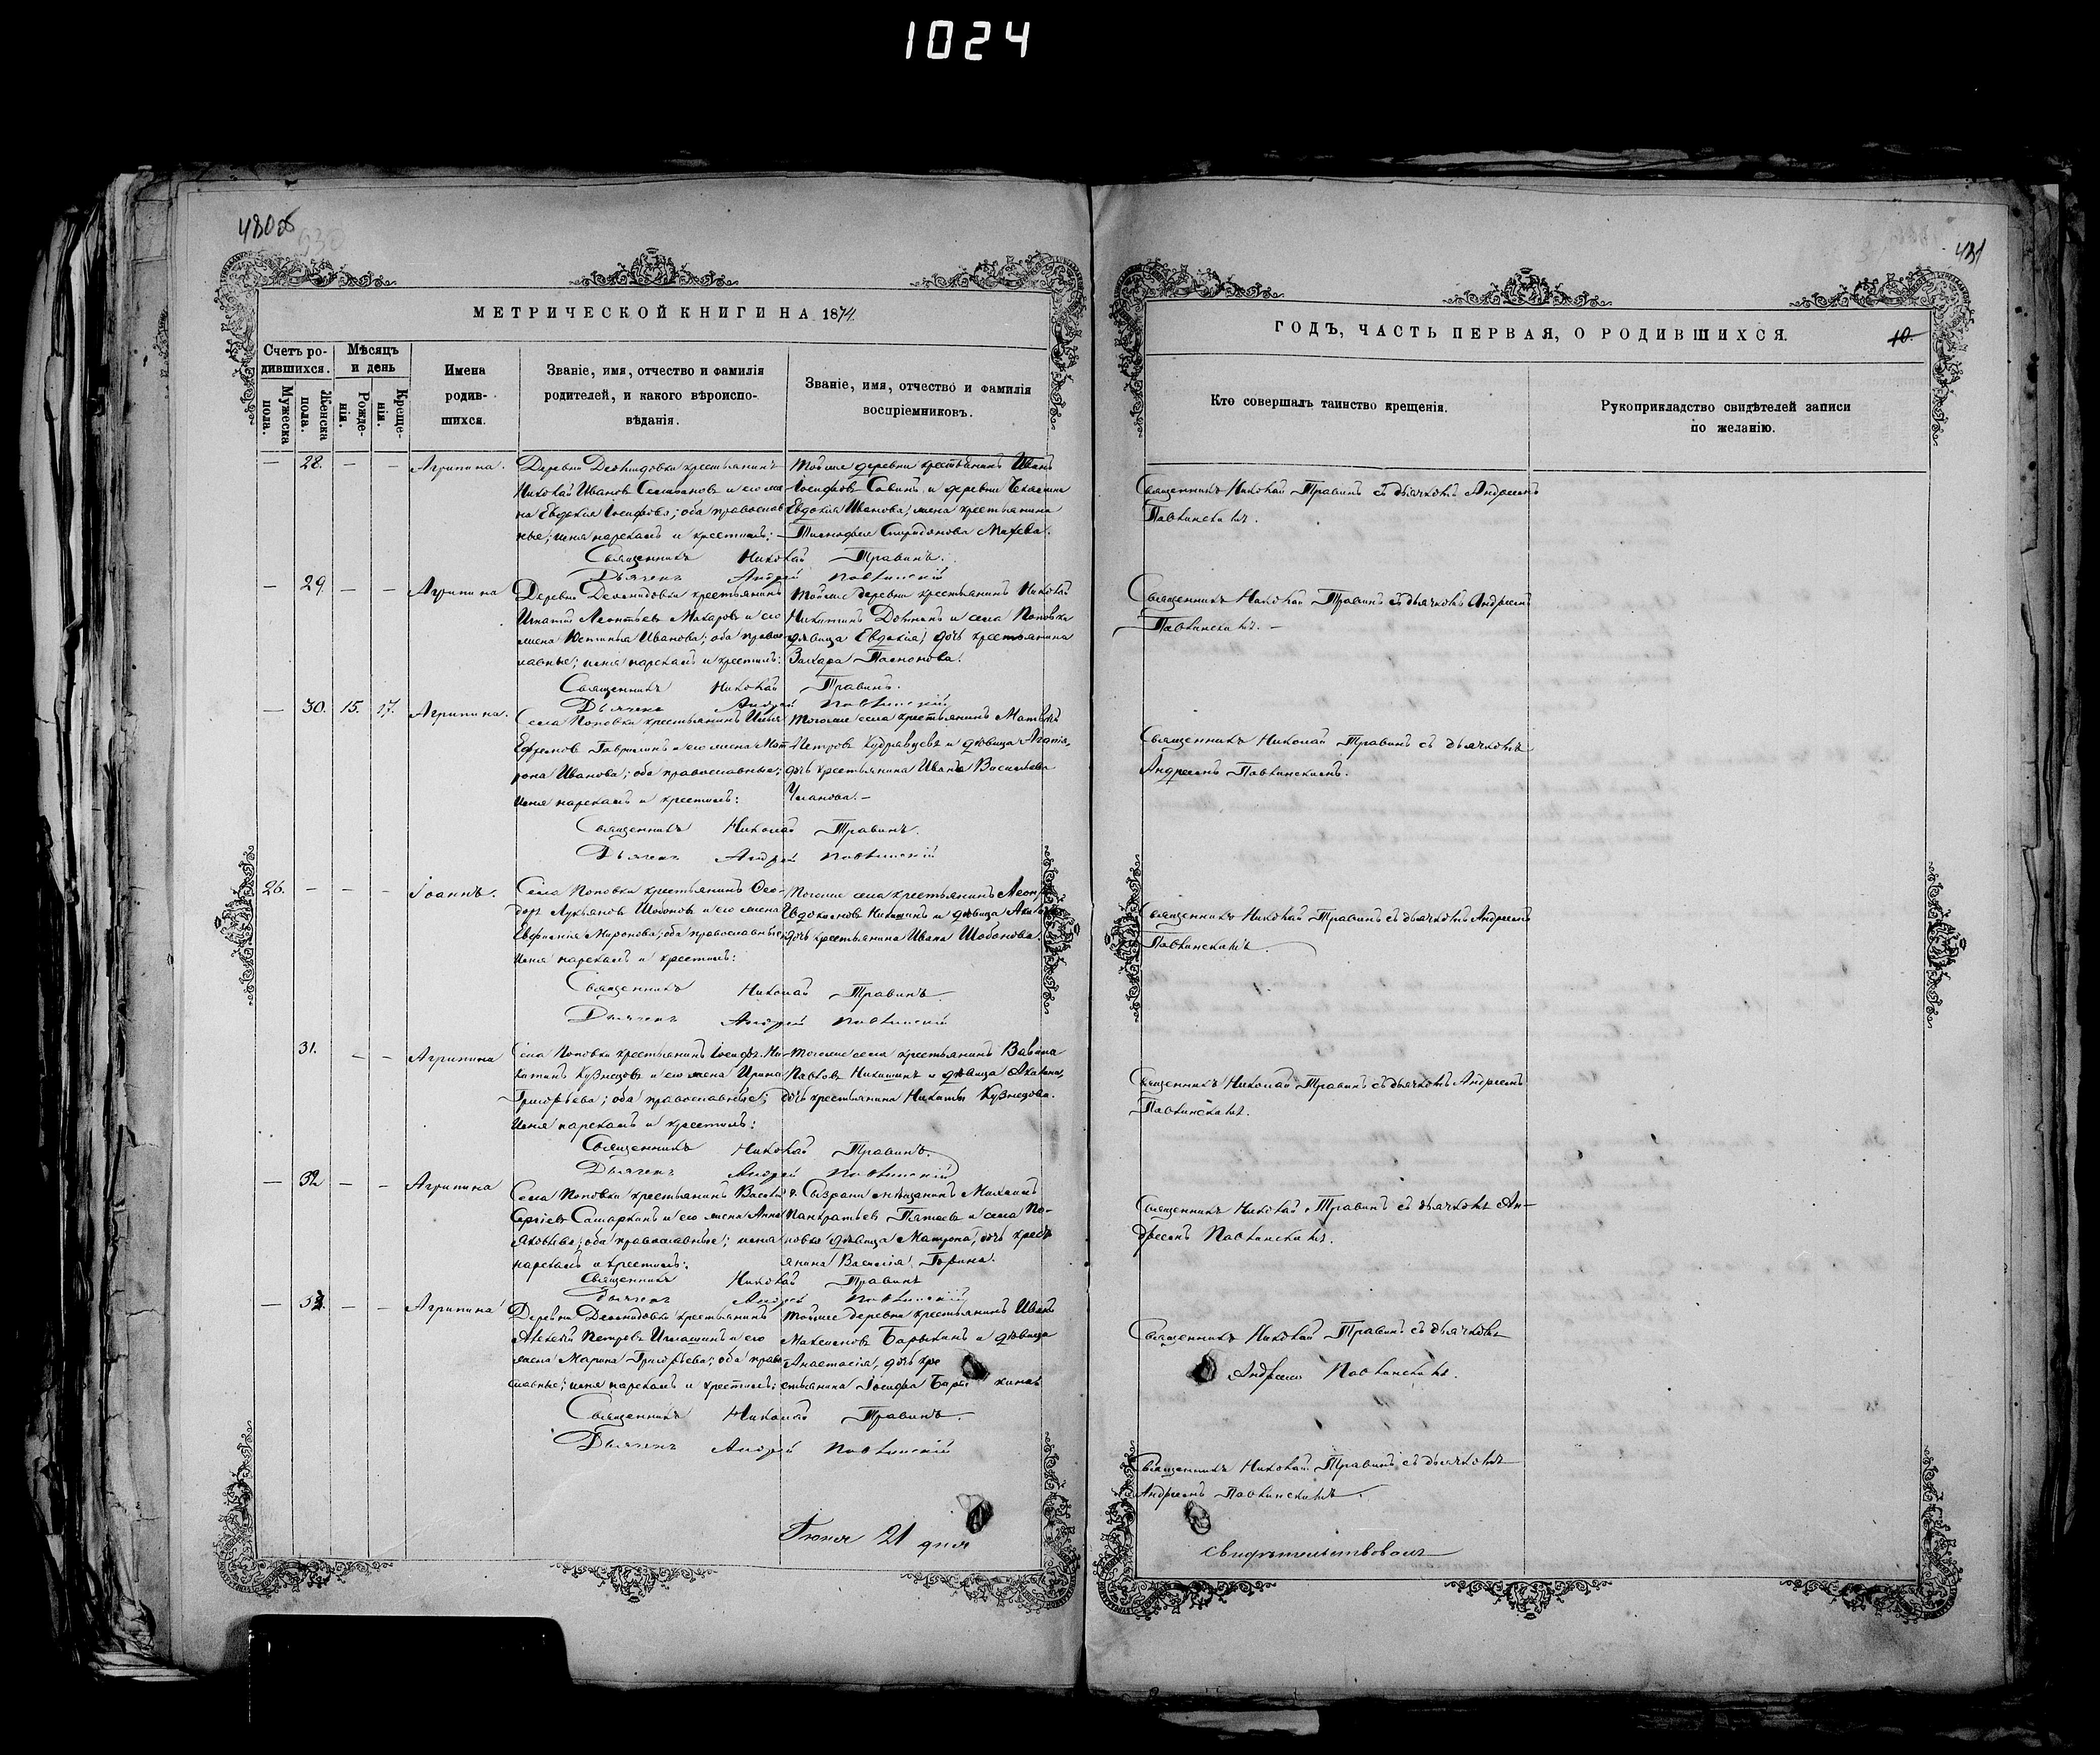 1024
480об
431
МЕТРИЧЕСКОЙ КНИГИ НА 1874
ГОДЪ, ЧАСТЬ ПЕРВАЯ, О РОДИВШИХСЯ.
10.
Счетъ ро-
дившихся.
Мужеска
пола.
Женска
пола.
Мѣсяцъ
и день
Рожде-
нія.
Креще-
нія.
Имена
родив-
шихся.
Званіе, имя, отчество и фамилія
родителей, и какого вѣроиспо-
вѣданія.
Званіе, имя, отчество и фамилія
воспріемниковъ.
Кто совершалъ таинство крещенія.
Рукоприкладство свидѣтелей записи
по желанію.
— 28. — — Агрипина.
Деревни крестьянинъ
Николай Ивановъ Селивановъ и его же-
на Евдокія Іосифова; оба православ-
ные; имя нарекалъ и крестилъ:
Тойже деревни крестьянинъ Иванъ
Іосифовъ Савинъ и деревни
Евдокія Иванова, жена крестьянина
Спиридонова
Священникъ Николай Травинъ.
Дьячекъ Андрей
Священникъ Николай Травинъ съ дьячкомъ Андреемъ
— 29. — — Агрипина
Деревни крестьянинъ
Игнатій Леонтьевъ Макаровъ и его
жена Устинья Иванова; оба право-
славные; имя нарекалъ и крестилъ:
Тойже деревни крестьянинъ Николай
Никитинъ и села Поповки
дѣвица Евдокія, дочь крестьянина
Захара
Священникъ Николай Травинъ.
Дьячекъ Андрей
Священникъ Николай Травинъ съ дьячкомъ Андреемъ
— 30. 15. 17. Агрипина.
Села Поповки крестьянинъ Илья
Ефремовъ Гаврилинъ и его жена Мат-
рона Иванова; оба православные;
имя нарекалъ и крестилъ:
Тогоже села крестьянинъ Матвей
Петровъ Кудрявцевъ и дѣвица Агапія,
дочь крестьянина Ивана Васильева
Уланова. —
Священникъ Николай Травинъ.
Дьячекъ Андрей
Священникъ Николай Травинъ съ дьячкомъ
Андреемъ
26. — — — Іоаннъ.
Села Поповки крестьянинъ Ѳео-
доръ Лукьяновъ Шабановъ и его жена
Евфимія Миронова; оба православные;
имя нарекалъ и крестилъ:
Тогоже села крестьянинъ
Евдокимовъ Никишинъ и дѣвица
дочь крестьянина Ивана Шабанова.
Священникъ Николай Травинъ.
Дьячекъ Андрей
Священникъ Николай Травинъ съ дьячкомъ Андреемъ
31. — — Агрипина
Села Поповки крестьянинъ Іосифъ Ни-
китинъ Кузнецовъ и его жена Ирина
Григорьева; оба православные;
имя нарекалъ и крестилъ:
Тогоже села крестьянинъ Вавила
Павловъ Никишинъ и дѣвица Акилина,
дочь крестьянина Никиты Кузнецова.
Священникъ Николай Травинъ.
Дьячекъ Андрей
Священникъ Николай Травинъ съ дьячкомъ Андреемъ
— 32 — — Агрипина
Села Поповки крестьянинъ Василій
Сергіевъ Самаркинъ и его жена Анна
Яковлева; оба православные; имя
нарекалъ и крестилъ:
г. Сызрани мѣщанинъ Михаилъ
Панкратьевъ и села По-
повки дѣвица Матрона, дочь кресть-
янина Василія Горина.
Священникъ Николай Травинъ
Дьячекъ Андрей
Священникъ Николай Травинъ съ дьячкомъ Ан-
дреемъ
— 33. — — Агрипина
Деревни крестьянинъ
Алексей Петровъ Игнашинъ и его
жена Марина Григорьева; оба право-
славные; имя нарекалъ и крестилъ:
Тойже деревни крестьянинъ Иванъ
Максимовъ Барыкинъ и дѣвица
Анастасія, дочь кре-
стьянина Іосифа Барыкина.
Священникъ Николай Травинъ.
Дьячекъ Андрей
Священникъ Николай Травинъ съ дьячкомъ
Андреемъ
Священникъ Николай Травинъ съ дьячкомъ
Андреемъ
Іюня 21 дня
свидѣтельствовалъ